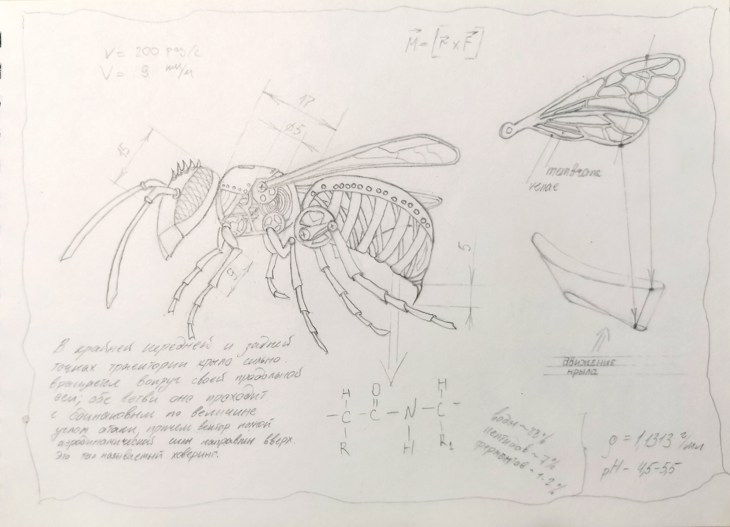 V = 200 рад/с
V = 8 мм/м
M = [r × F]
17
15
16
9
5
membrana
велае
движение
крыла
В крайней передней и задней
точках траектории крыло сильно
вращается вокруг своей продольной
оси, обе ветви оно проходит
с одинаковым по величине
углом атаки, причем вектор полной
аэродинамической силы направлен вверх.
Это так называемый ховеринг.
H O H
– C – C – N – C –
R H R₁
воды –
пептидов – 7%
ферментов – 1-2%
ρ = 1.1313 г/мл
pH – 4,5-5,5